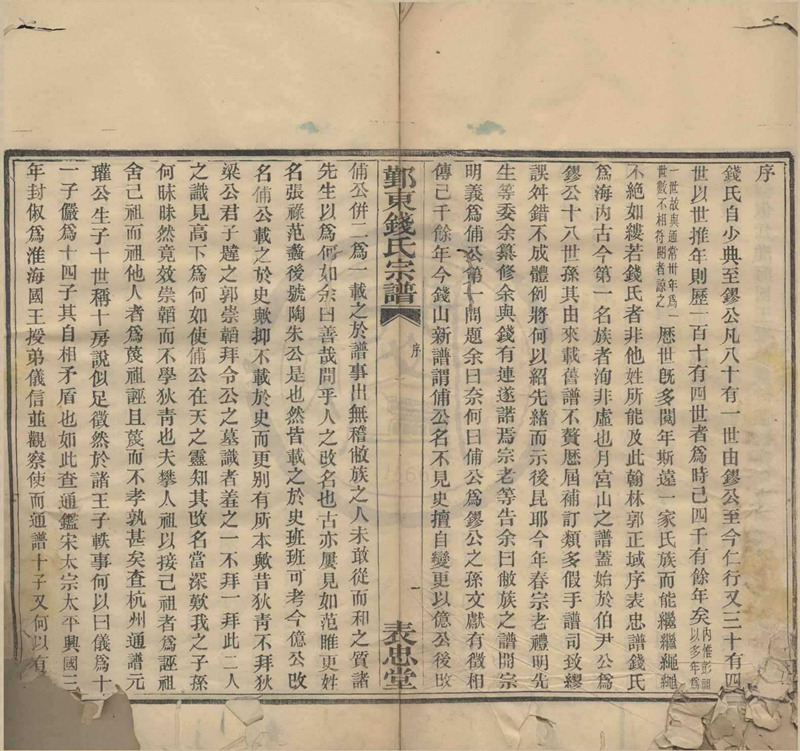 序
錢氏自少典至鏐公凡八十有一世由鏐公至今仁行又三十有四
世以世推年則歷一百十有四世者爲時已四千有餘年矣內惟彭祖以多年爲
一世故與通常卅年爲一世數不相符閱者諒之歷世旣多閱年斯遠一家氏族而能繼繼繩繩
不絶如縷若錢氏者非他姓所能及此翰林郭正域序表忠譜錢氏
爲海內古今第一名族者洵非虛也月宮山之譜蓋始於伯尹公爲
鏐公十八世孫其由來載舊譜不贅歷屆補訂類多假手譜司致繆
誤舛錯不成體例將何以紹先緒而示後昆耶今年春宗老禮明先
生等委余纂修余與錢有連遂諾焉宗老等告余曰敝族之譜開宗
明義爲俌公第一問題余曰奈何曰俌公爲鏐公之孫文獻有徵相
傳已千餘年今錢山新譜謂俌公名不見史擅自變更以億公後改
鄞東錢氏宗譜
序
一
表忠堂
俌公併二爲一載之於譜事出無稽敝族之人未敢從而和之質諸
先生以爲何如余曰善哉問乎人之改名也古亦屢見如范睢更姓
名張祿范蠡後號陶朱公是也然皆載之於史班班可考今億公改
名俌公載之於史歟抑不載於史而更别有所本歟昔狄靑不拜狄
梁公君子韙之郭崇韜拜令公之墓識者羞之一不拜一拜此二人
之識見高下爲何如使俌公在天之靈知其改名當深歎我之子孫
何昧昧然竟效崇韜而不學狄靑也夫攀人祖以接己祖者爲誣祖
舍己祖而祖他人者爲蔑祖誣且蔑而不孝孰甚矣查杭州通譜元
瓘公生子十世稱十房說似足徵然於諸王子軼事何以曰儀爲十
一子儼爲十四子其自相矛盾也如此查通鑑宋太宗太平興國三
年封俶爲淮海國王授弟儀信並觀察使而通譜十子又何以有